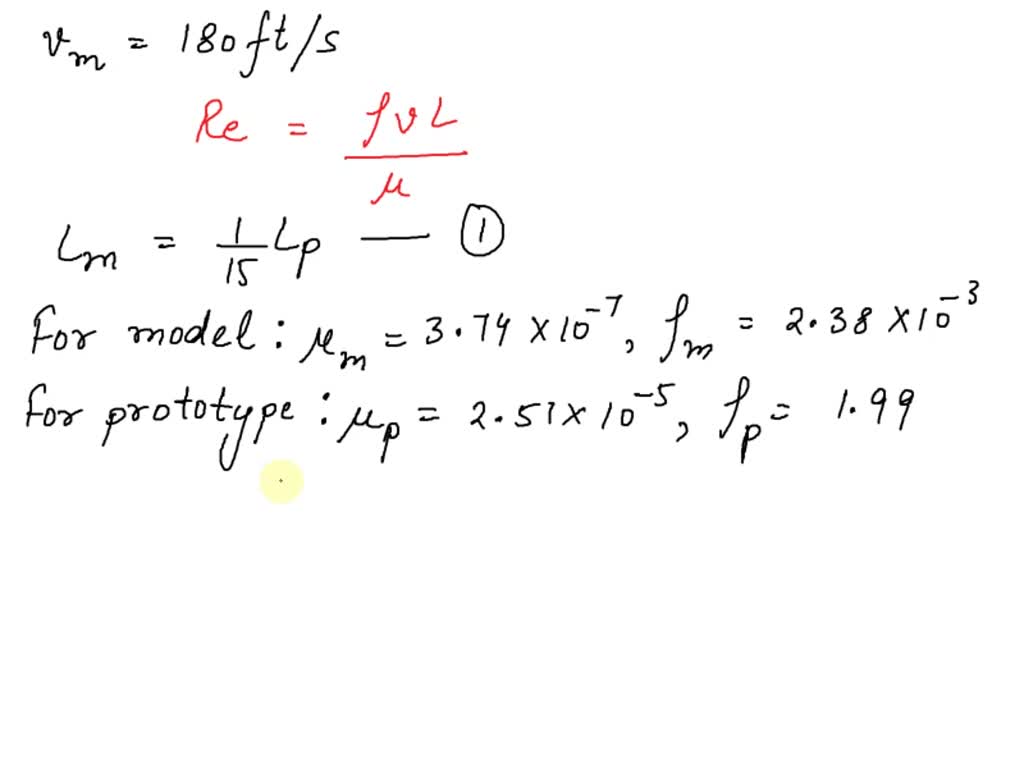 v_m = 180 ft/s
Re = ρvL / μ
L_m = 1/15 L_p — ①
For model : μ_m = 3.74 × 10^-7, ρ_m = 2.38 × 10^-3
for prototype : μ_p = 2.51 × 10^-5, ρ_p = 1.99